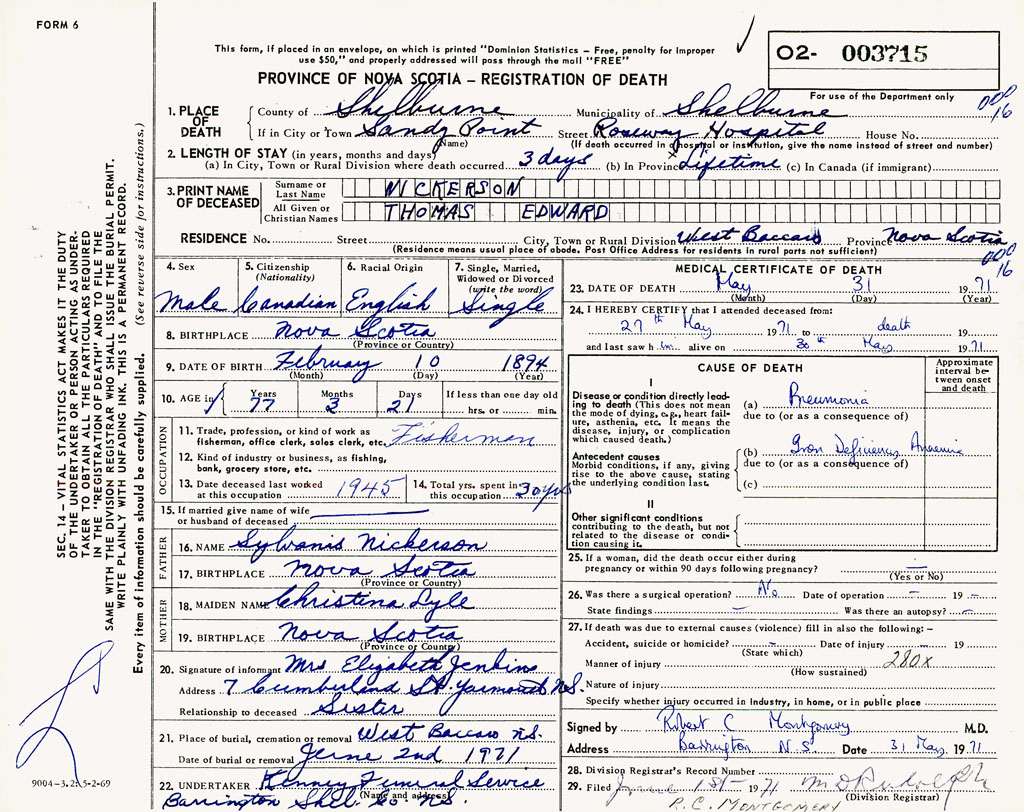 FORM 6
This form, if placed in an envelope, on which is printed "Dominion Statistics – Free, penalty for improper
use $50," and properly addressed will pass through the mail "FREE"
PROVINCE OF NOVA SCOTIA – REGISTRATION OF DEATH
02- 003715
For use of the Department only
000
16
1. PLACE OF DEATH
County of Shelburne Municipality of Shelburne
If in City or Town Sandy Point Street Roseway Hospital House No.
(Name) (If death occurred in a hospital or institution, give the name instead of street and number)
2. LENGTH OF STAY (in years, months and days)
(a) In City, Town or Rural Division where death occurred 3 days (b) In Province x Lifetime (c) In Canada (if immigrant)
3. PRINT NAME OF DECEASED
Surname or Last Name NICKERSON
All Given or Christian Names THOMAS EDWARD
RESIDENCE No. Street City, Town or Rural Division West Baccaro Province Nova Scotia
(Residence means usual place of abode. Post Office Address for residents in rural parts not sufficient)
000
16
4. Sex Male
5. Citizenship (Nationality) Canadian
6. Racial Origin English
7. Single, Married, Widowed or Divorced (write the word) Single
8. BIRTHPLACE Nova Scotia
(Province or Country)
9. DATE OF BIRTH February 10 1894
(Month) (Day) (Year)
10. AGE in Years 77 Months 3 Days 21 If less than one day old
hrs. or min.
OCCUPATION
11. Trade, profession, or kind of work as
fisherman, office clerk, sales clerk, etc. Fisherman
12. Kind of industry or business, as fishing,
bank, grocery store, etc.
13. Date deceased last worked
at this occupation 1945
14. Total yrs. spent in
this occupation 30 yrs
15. If married give name of wife
or husband of deceased
FATHER
16. NAME Sylvanis Nickerson
17. BIRTHPLACE Nova Scotia
(Province or Country)
MOTHER
18. MAIDEN NAME Christina Lyle
19. BIRTHPLACE Nova Scotia
(Province or Country)
20. Signature of informant Mrs Elizabeth Jenkins
Address 7 Cumberland St. Yarmouth N.S.
Relationship to deceased Sister
21. Place of burial, cremation or removal West Baccaro N.S.
Date of burial or removal June 2nd 1971
22. UNDERTAKER Kenney Funeral Service
(Name and address)
Barrington Shel. Co N.S.
MEDICAL CERTIFICATE OF DEATH
23. DATE OF DEATH May 31 1971
(Month) (Day) (Year)
24. I HEREBY CERTIFY that I attended deceased from:
27th May 1971 to death 19
and last saw him alive on 30th May 1971
CAUSE OF DEATH
Approximate interval between onset and death
I
Disease or condition directly leading to death (This does not
mean the mode of dying, e.g., heart failure, asthenia, etc. It means the
disease, injury, or complication
which caused death.)
(a) Pneumonia
due to (or as a consequence of)
Antecedent causes
Morbid conditions, if any, giving
rise to the above cause, stating
the underlying condition last.
(b) Iron Deficiency Anaemia
due to (or as a consequence of)
(c)
II
Other significant conditions
contributing to the death, but not
related to the disease or condition causing it.
25. If a woman, did the death occur either during
pregnancy or within 90 days following pregnancy? –
(Yes or No)
26. Was there a surgical operation? No Date of operation – 19 –
State findings – Was there an autopsy? –
27. If death was due to external causes (violence) fill in also the following:–
Accident, suicide or homicide? – Date of injury – 19
(State which)
Manner of injury 280X
(How sustained)
Nature of injury
Specify whether injury occurred in Industry, in home, or in public place
Signed by Robert C Montgomery M.D.
Address Barrington N S Date 31 May 1971
28. Division Registrar's Record Number
29. Filed June 1st 1971
(Division Registrar)
R.C. MONTGOMERY
SEC. 14 – VITAL STATISTICS ACT MAKES IT THE DUTY
OF THE UNDERTAKER OR PERSON ACTING AS UNDERTAKER TO OBTAIN ALL THE PARTICULARS REQUIRED
IN THE "REGISTRATION OF DEATH" AND TO FILE THE
SAME WITH THE DIVISION REGISTRAR WHO SHALL ISSUE THE BURIAL PERMIT.
WRITE PLAINLY WITH UNFADING INK. THIS IS A PERMANENT RECORD.
Every item of information should be carefully supplied. (See reverse side for instructions.)